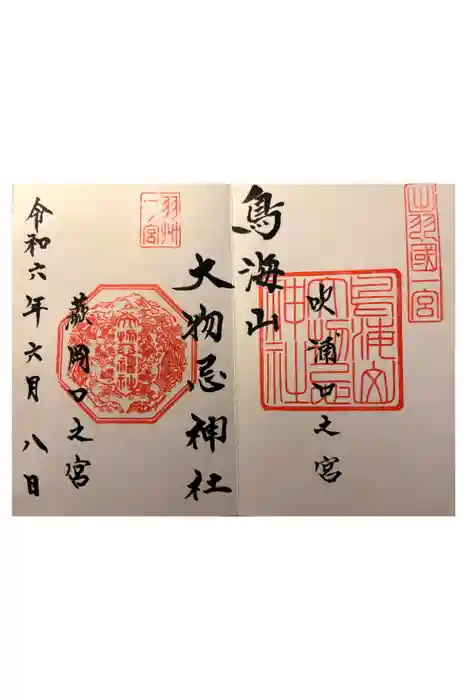 出羽國一宮
鳥海山
吹浦口之宮
鳥海山大物忌神社
大物忌神社
羽州一ノ宮
蕨岡口之宮
令和六年六月八日